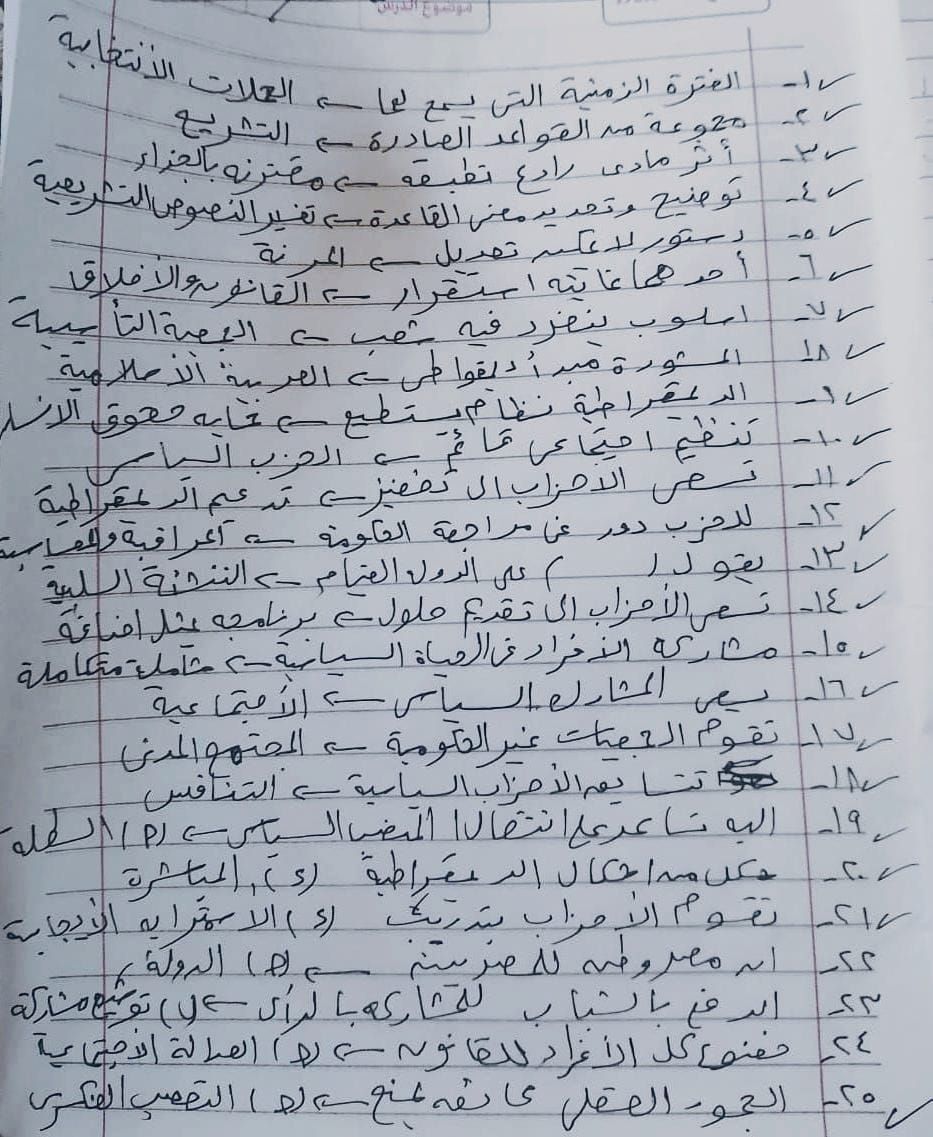 موضوع الدرس
١- الفترة الزمنية التى يسمح لها ← الحملات الأنتخابية
٢- مجموعة من القواعد الصادرة ← التشريع
٣- أثر مادى رادع تطبيقة ← مقترنه بالجزاء
٤- توضيح وتحديد معنى القاعدة ← تفسير النصوص التشريعية
٥- دستور لا يمكن تعديل ← المرنة
٦- أحدهما غايته استقرار ← القانون والأخلاق
٧- اسلوب ينفرد فيه شعب ← الجمعية التأسيسية
٨- المشورة مبدأ ديقواطى ← العربية الأسلامية
٩- الديمقراطية نظام يستطيع ← حماية حقوق الانسان
١٠- تنظيم اجتماعى قائم ← الحزب السياسى
١١- تسعى الأحزاب الى تحفيز ← تدعم الديمقراطية
١٢- للحزب دور فى مراجعة الحكومة ← المراقبة والمحاسبة
١٣- يقول ( ) على الدول القيام ← التنشئة السلبية
١٤- تسعى الأحزاب الى تقديم حلول ← برنامجه يمثل اضافة
١٥- مشاركة الأفراد فى الحياة السياسية ← شاملة متكاملة
١٦- يسعى المشارك السياسى ← الأجتماعية
١٧- تقوم الجمعيات غير الحكومية ← المجتمع المدنى
١٨- تتسابق الأحزاب السياسية ← التنافس
١٩- اليه تساعد على انتقال المنصب السياسى ← (P) السلطة
٢٠- شكل من اشكال الديمقراطية (د) المباشرة
٢١- تقوم الأحزاب بتدريبك (د) الاستمرارية الأيجابية
٢٢- ان معروضه للضريبة ← (ج) الدولة
٢٣- الدفع بالشباب للمشاركة بالرأى ← (ب) توسيع مشاركة
٢٤- خضوع كل الأفراد للقانون ← (ج) العدالة الأجتماعية
٢٥- الجمود العقلى عائقه يمنع ← (ج) التعصب الفكرى